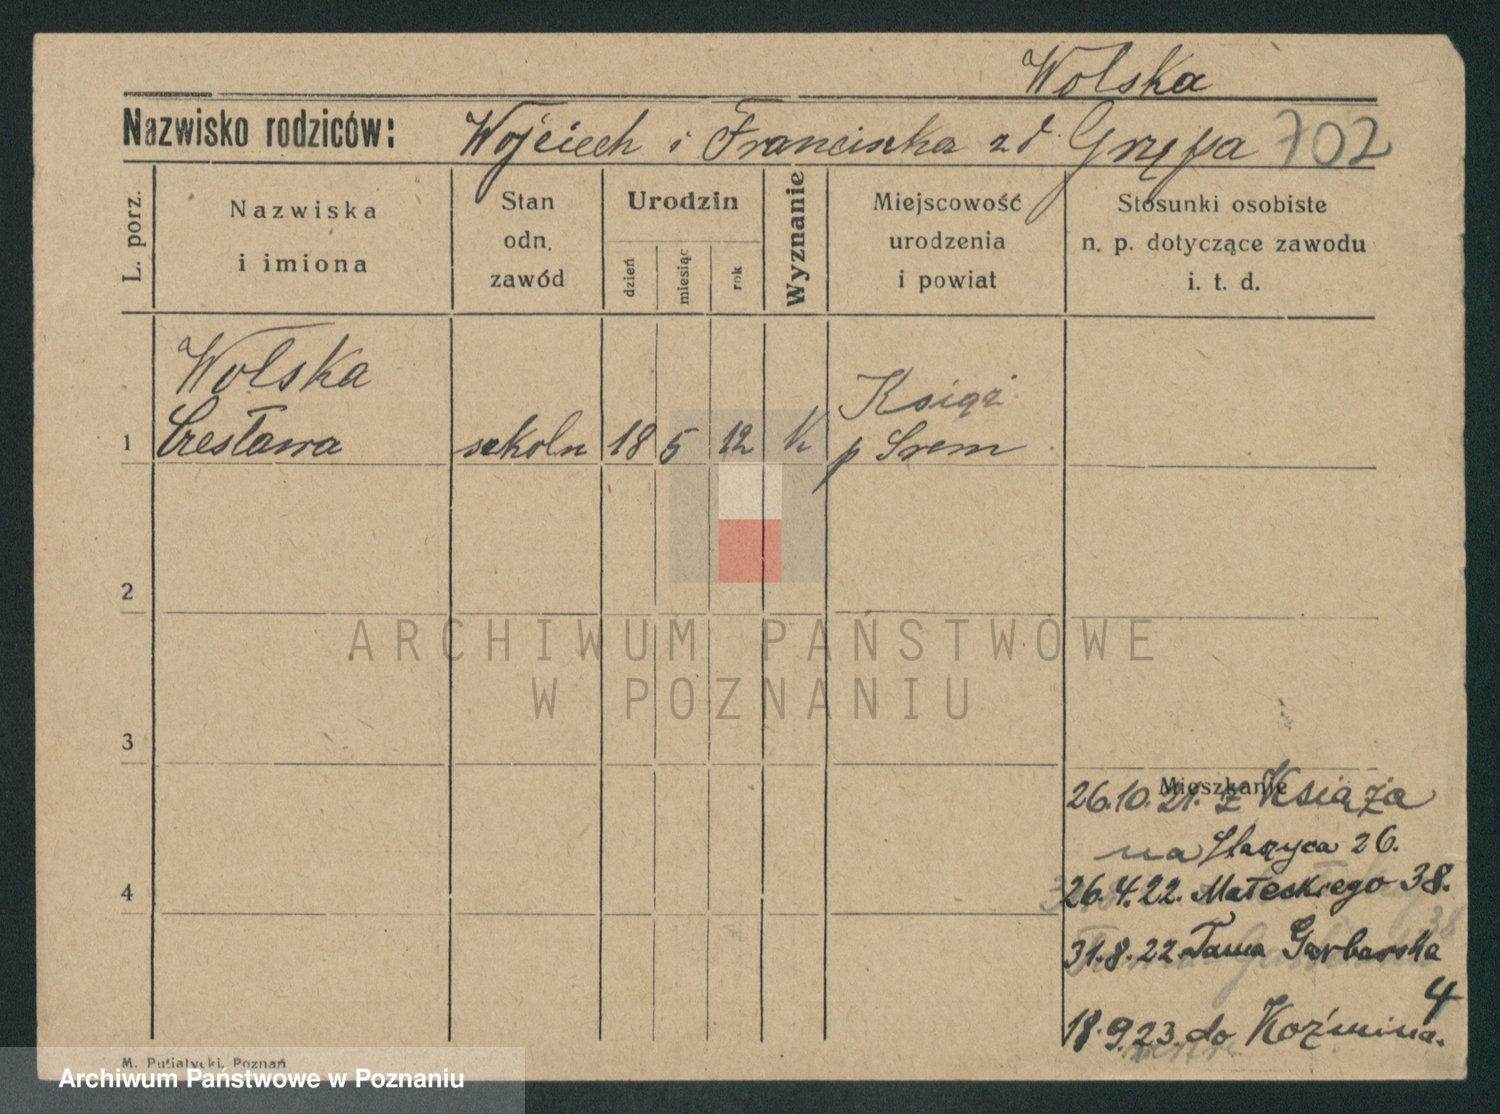 Wolska
Nazwisko rodziców: Wojciech i Franciszka zd. Grzępa 702
L. porz.
Nazwiska
i imiona
Stan
odn.
zawód
Urodzin
dzień
miesiąc
rok
Wyznanie
Miejscowość
urodzenia
i powiat
Stosunki osobiste
n. p. dotyczące zawodu
i. t. d.
Wolska
Książ
1 Czesława szkoln 18 5 12 K p Srem
2
ARCHIWUM PAŃSTWOWE
W POZNANIU
3
Mieszkanie
26.10.21. z Książa
na
26.
4
26.4.22. Małeckiego 38.
31.8.22. Tama Garbarska
4
18.9.23. do Koźmina.
M. Putiatycki, Poznań
Archiwum Państwowe w Poznaniu